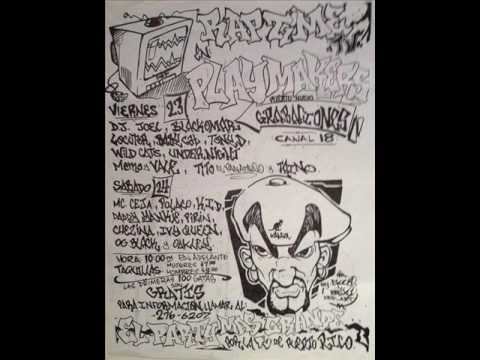 RAP TIME TV.
N
PLAYMAKERS
PUERTO NUEVO
GRABACIONES
CANAL 18
VIERNES 23
D.J. JOEL, BLACKOMAR
LOCUTOR, BABY CAT, TONY D.
WILD CATS,
MEMO & VALE, TITO & KING
SABADO 24
MC CEJA, POLACO, K.I.D.
DADDY YANKEE, PIRIN,
CUEZINA, IVY QUEEN,
OG BLACK, & OAKLEY
HORA 10:00 PM EN ADELANTE
TAQUILLAS: MUJERES HOMBRES
LAS PRIMERAS 100 GATAS
SON
GRATIS
PARA INFORMACION LLAMAR AL:
276-6207
EL PARTY MAS GRANDE
DE PUERTO RICO